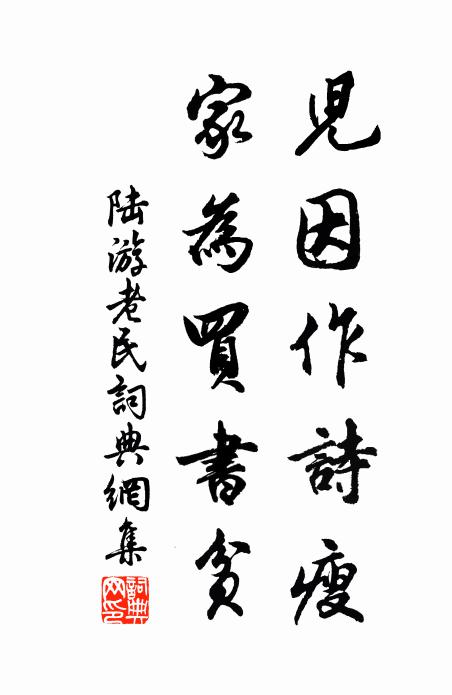 兒因作詩瘦
家為買書貧
陸游老民詞典網集
詞典網印